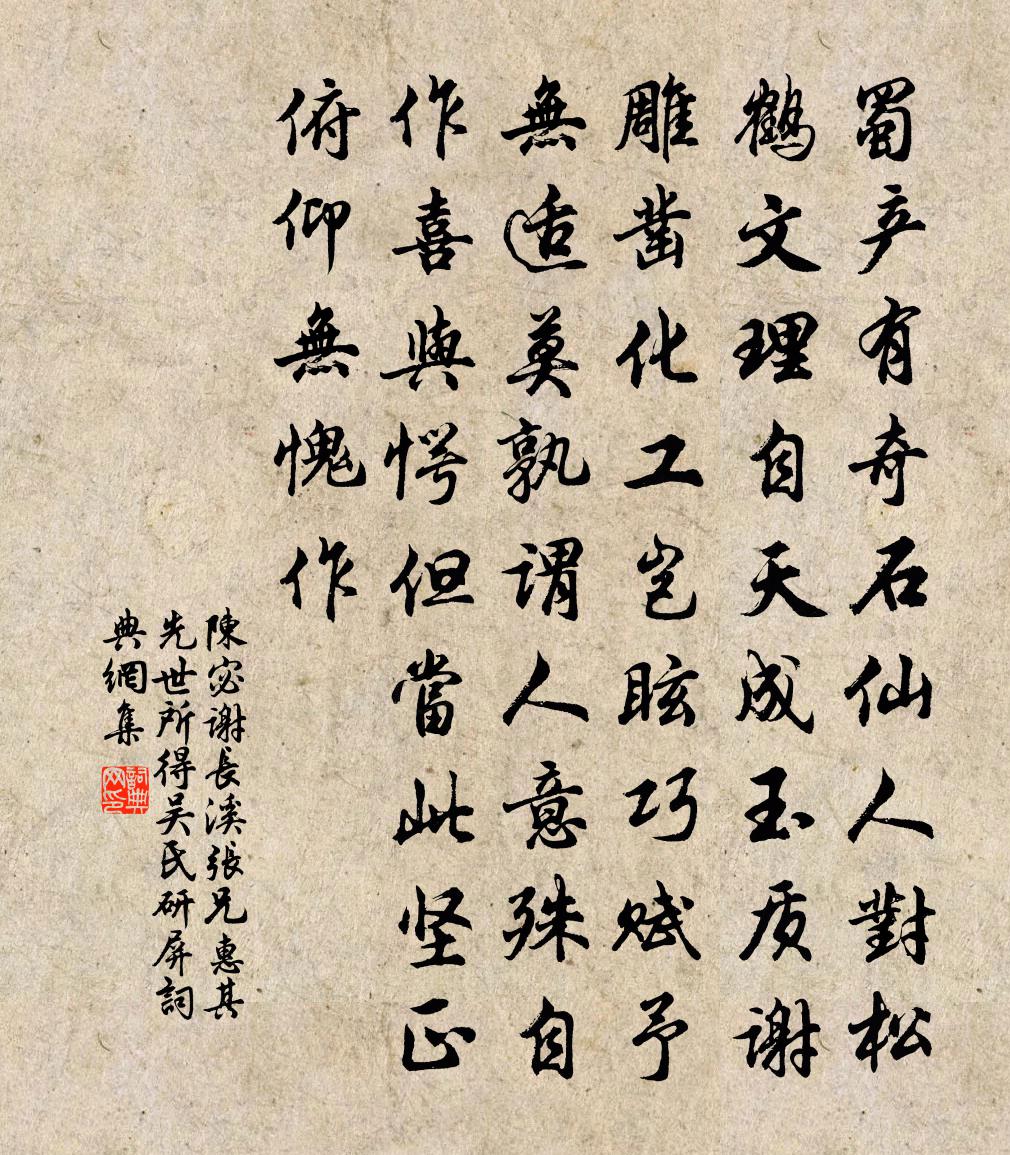 蜀产有奇石仙人對松
鶴文理自天成玉质謝
雕凿化工岂眩巧赋予
無适莫孰謂人意殊自
作喜與愕但當此坚正
俯仰無愧作
陳宓謝長溪張兄惠其
先世所得吴氏研屏詞
典網集
詞典网印